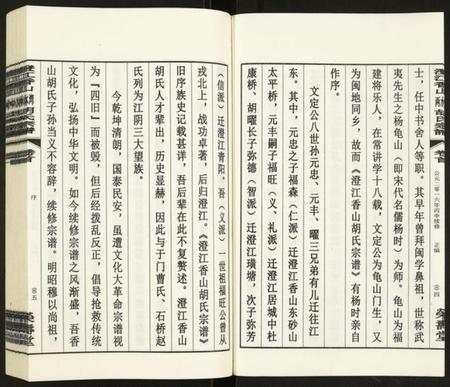 士，任中书舍人等职。其早年曾拜闽学鼻祖，世称武
夷先生之杨龟山（即宋代名儒杨时）为师。龟山为福
建将乐人，在常讲学十八载，文定公为龟山门生，又
为闽地同乡，故而《澄江香山胡氏宗谱》有杨时亲自
作序。
文定公八世孙元忠、元丰、曜三兄弟有儿迁往江
东。其中，元忠之子福森（仁派）迁澄江香山东砂山
太平桥，元丰嗣子福旺（义、礼派）迁澄江居城中杜
康桥、胡曜长子弥德（智派）迁澄江璜塘，次子弥芳
公元二零一六年丙申续修
正编
卷首
四
荣寿堂
（信派）迁澄江青阳。吾（义派）一世祖福旺公曾从
戎北上，战功卓著，后归澄江。《澄江香山胡氏宗谱》
旧序族史记载甚详，吾后辈在此不复赘述。澄江香山
胡氏人才辈出，历史显赫，因此与于门曹氏、石桥赵
氏列为江阴三大望族。
今乾坤清朗，国泰民安，虽遭文化大革命宗谱视
为『四旧』而被毁，但后经拨乱反正，倡导抢救传统
文化，弘扬中华文明。如今续修宗谱之风渐盛，吾香
山胡氏子孙当义不容辞，续修宗谱。明昭穆以尚祖，
澄江香山胡氏宗谱
卷首
序
五
荣寿堂